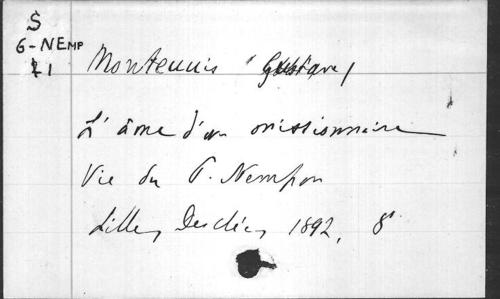 S
6-NEMP
1
Monteuuis (Gustave)
L'âme d'un missionnaire
Vie du P. Nempon
Lille, Desclée, 1892, 8°